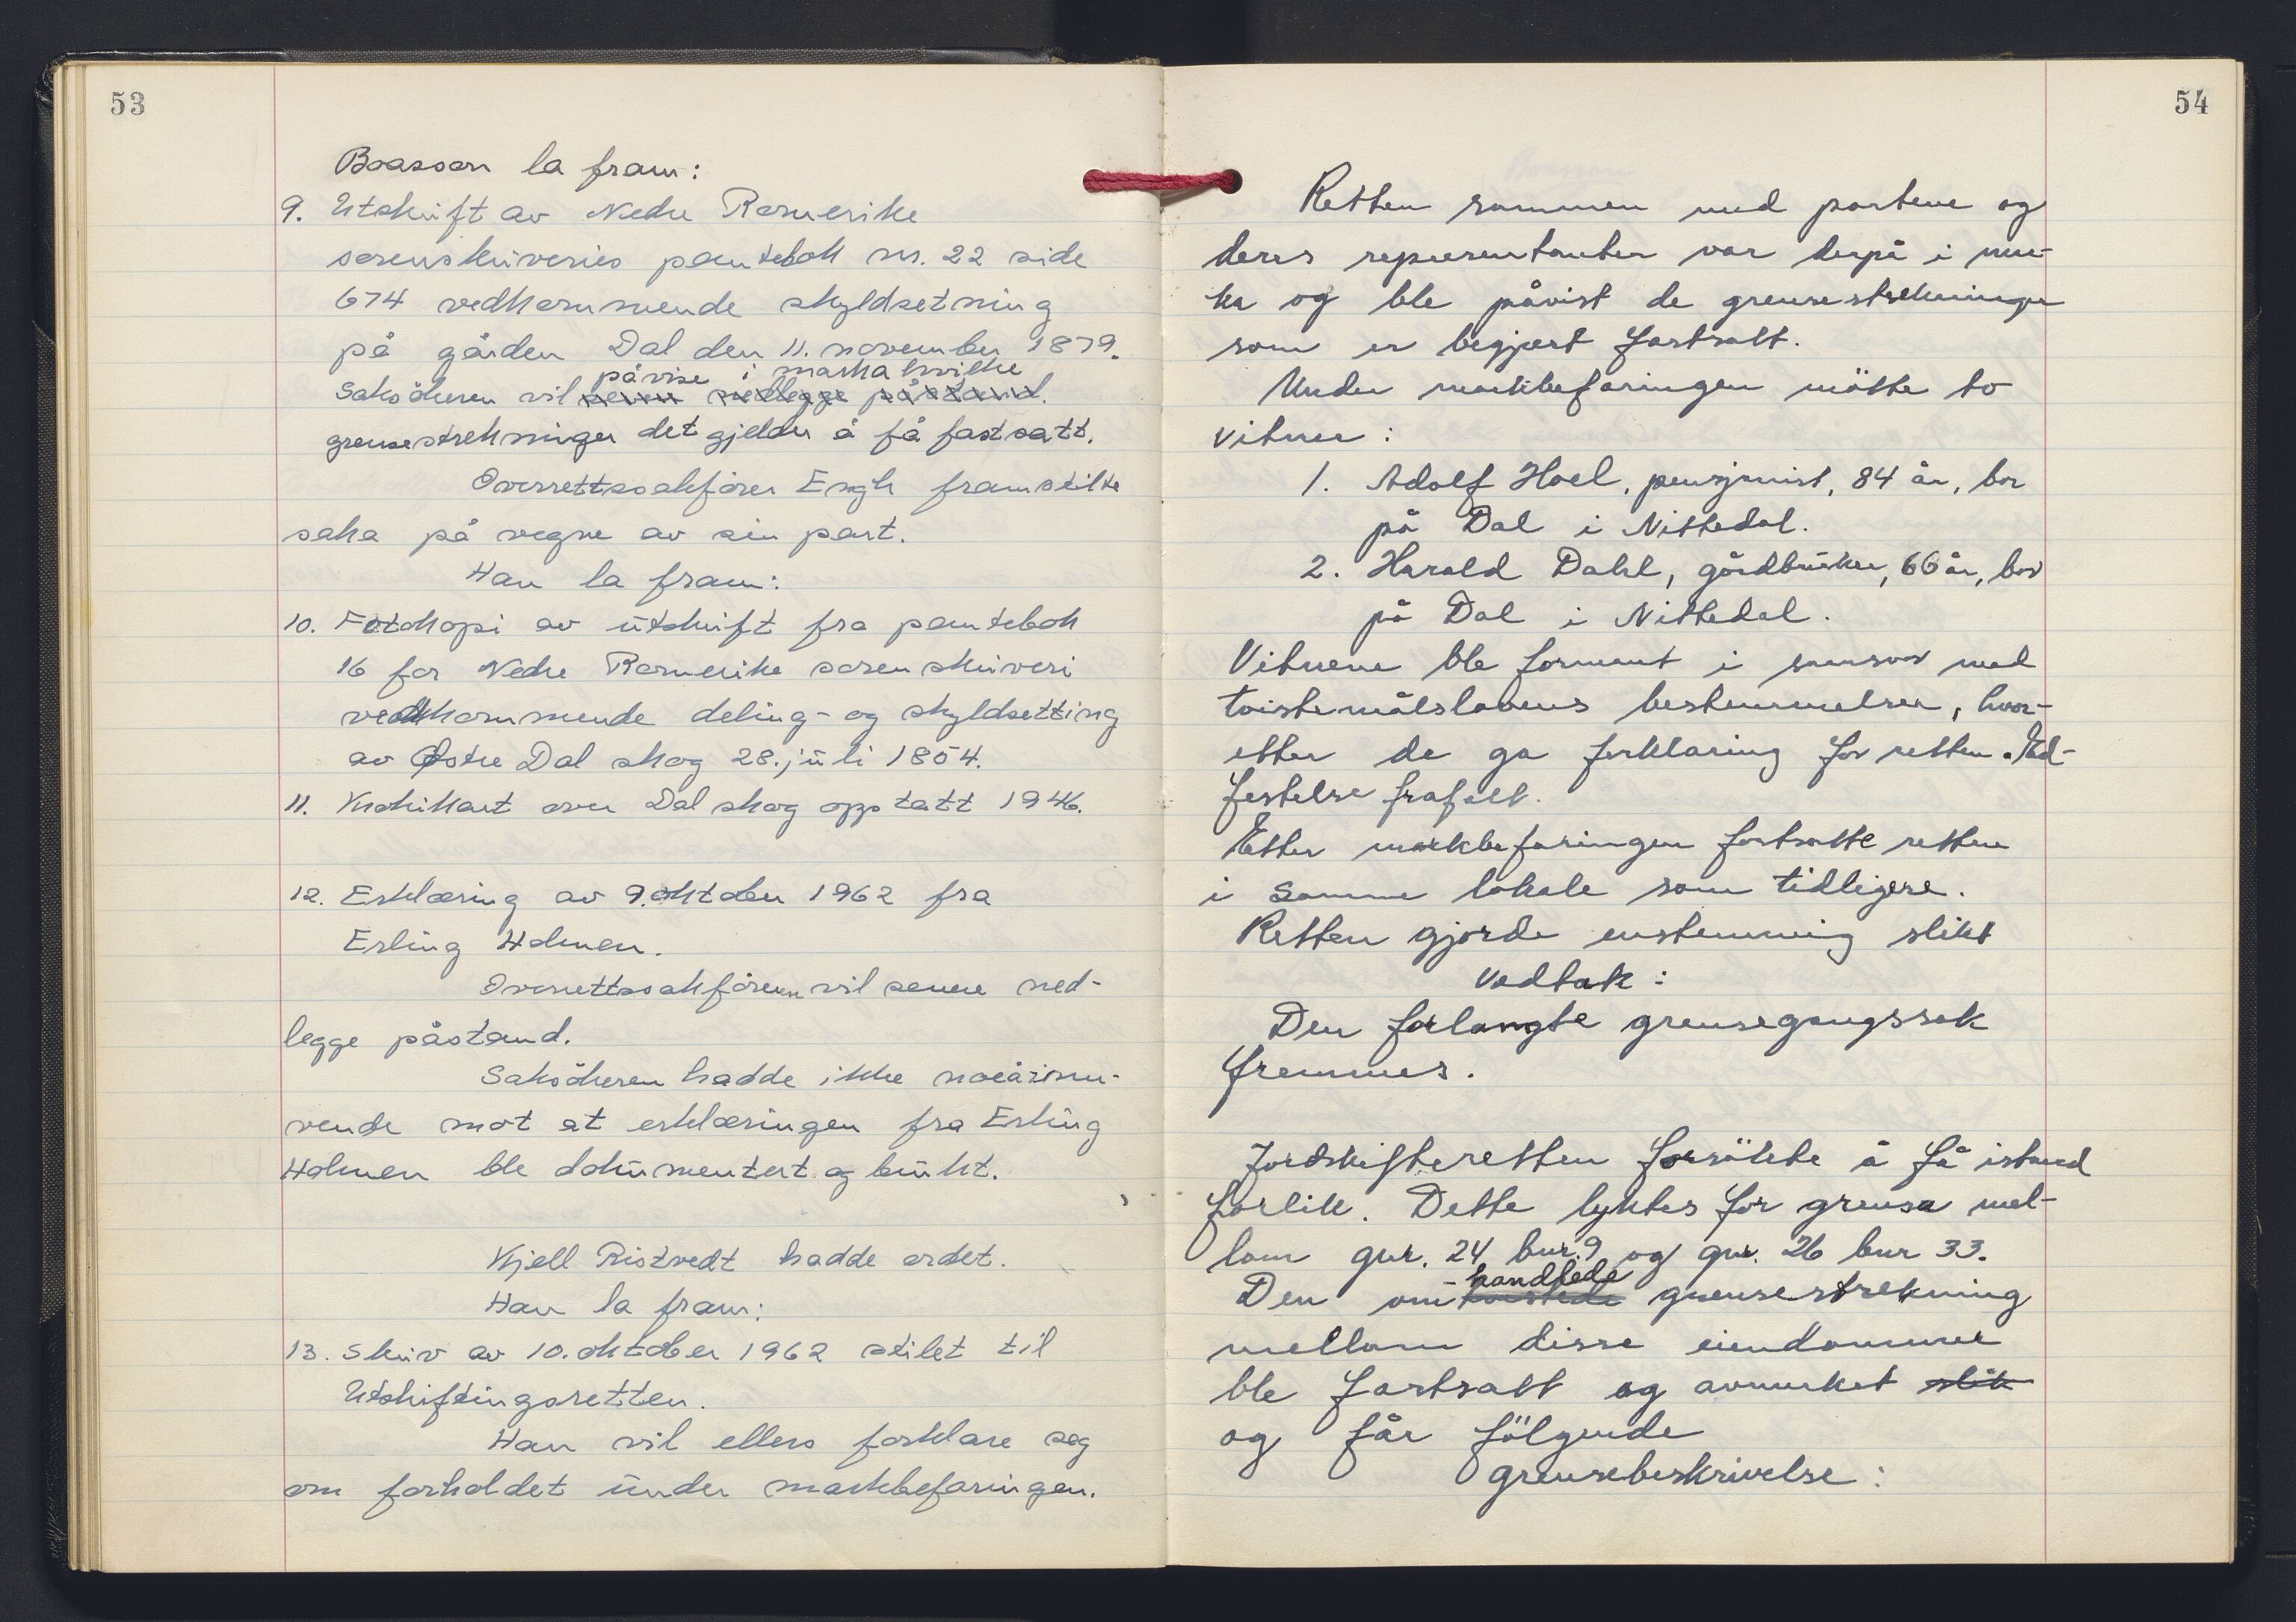 53
Boasson la fram:
9. Utskrift av Nedre Romerike
sorenskriveries pantebok nr. 22 side
674 vedkommende skyldsetning
på gården Dal den 11. november 1879.
påvise i marka hvilke
Saksökeren vil senere nedlegge påstand.
grensestrekninger det gjelder å få fastsatt.
Overrettssakförer Engh framstilte
saka på vegne av sin part.
Han la fram:
10. Fotokopi av utskrift fra pantebok
16 for Nedre Romerike sorenskriveri
vedkommende deling- og skyldsetting
av Østre Dal skog 28. juli 1854.
11. Krokikart over Dal skog opptatt 1946.
12. Erklæring av 9. oktober 1962 fra
Erling Holmen.
Overrettssakföreren vil senere ned-
legge påstand.
Saksökeren hadde ikke noe å inn-
vende mot at erklæringen fra Erling
Holmen ble dokumentert og brukt.
Kjell Ristvedt hadde ordet.
Han la fram:
13. Skriv av 10. oktober 1962 stilet til
Utskiftingsretten.
Han vil ellers forklare seg
om forholdet under markbefaringen.
54
Retten sammen med partene og
deres representanter var derpå i mar-
ka og ble påvist de grensestrekninger
som er begjært fastsatt.
Under markbefaringen mötte to
vitner:
1. Adolf Hoel, pensjonist, 84 år, bor
på Dal i Nittedal.
2. Harald Dahl, gårdbruker, 66 år, bor
på Dal i Nittedal.
Vitnene ble formant i samsvar med
tvistemålslovens bestemmelser, hvor-
etter de ga forklaring for retten. Ed-
festelse frafalt.
Etter markbefaringen fortsatte retten
i samme lokale som tidligere.
Retten gjorde enstemmig slikt
vedtak:
Den forlangte grensegangssak
fremmes.
Jordskifteretten forsökte å få istand
forlik. Dette lyktes for grensa mel-
lom gnr. 24 bnr. 9 og gnr. 26 bnr 33.
-handlede
Den omtvistede grensestrekning
mellom disse eiendommer
ble fastsatt og avmerket slik
og får fölgende
grensebeskrivelse: